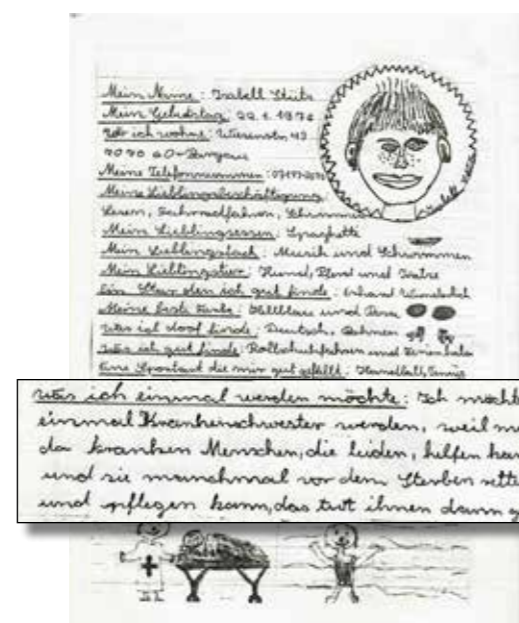 Mein Name : Isabell
Mein Geburtstag : 1.1972
Wo ich wohne : 43
7070
Meine Telefonnummer :
Meine Lieblingsbeschäftigung :
Lesen, Fachradfahren, Schwimmen
Mein Lieblingsessen : Spaghetti
Mein Lieblingsfach : Musik und Schwimmen
Mein Lieblingstier : Hund, Pferd und Katze
Ein Star den ich gut finde : Erhard
Meine liebste Farbe : Hellblau und Rosa
Was ich doof finde : Deutsch, Rechnen
Was ich gut finde : Rollschuhfahren und Ferien habe
Eine Sportart die mir gut gefällt : Handball, Tennis
Was ich einmal werden möchte : Ich möcht
einmal Krankenschwester werden, weil m
da kranken Menschen, die leiden, helfen kan
und sie manchmal vor dem Sterben rette
und pflegen kann, das tut ihnen dann g